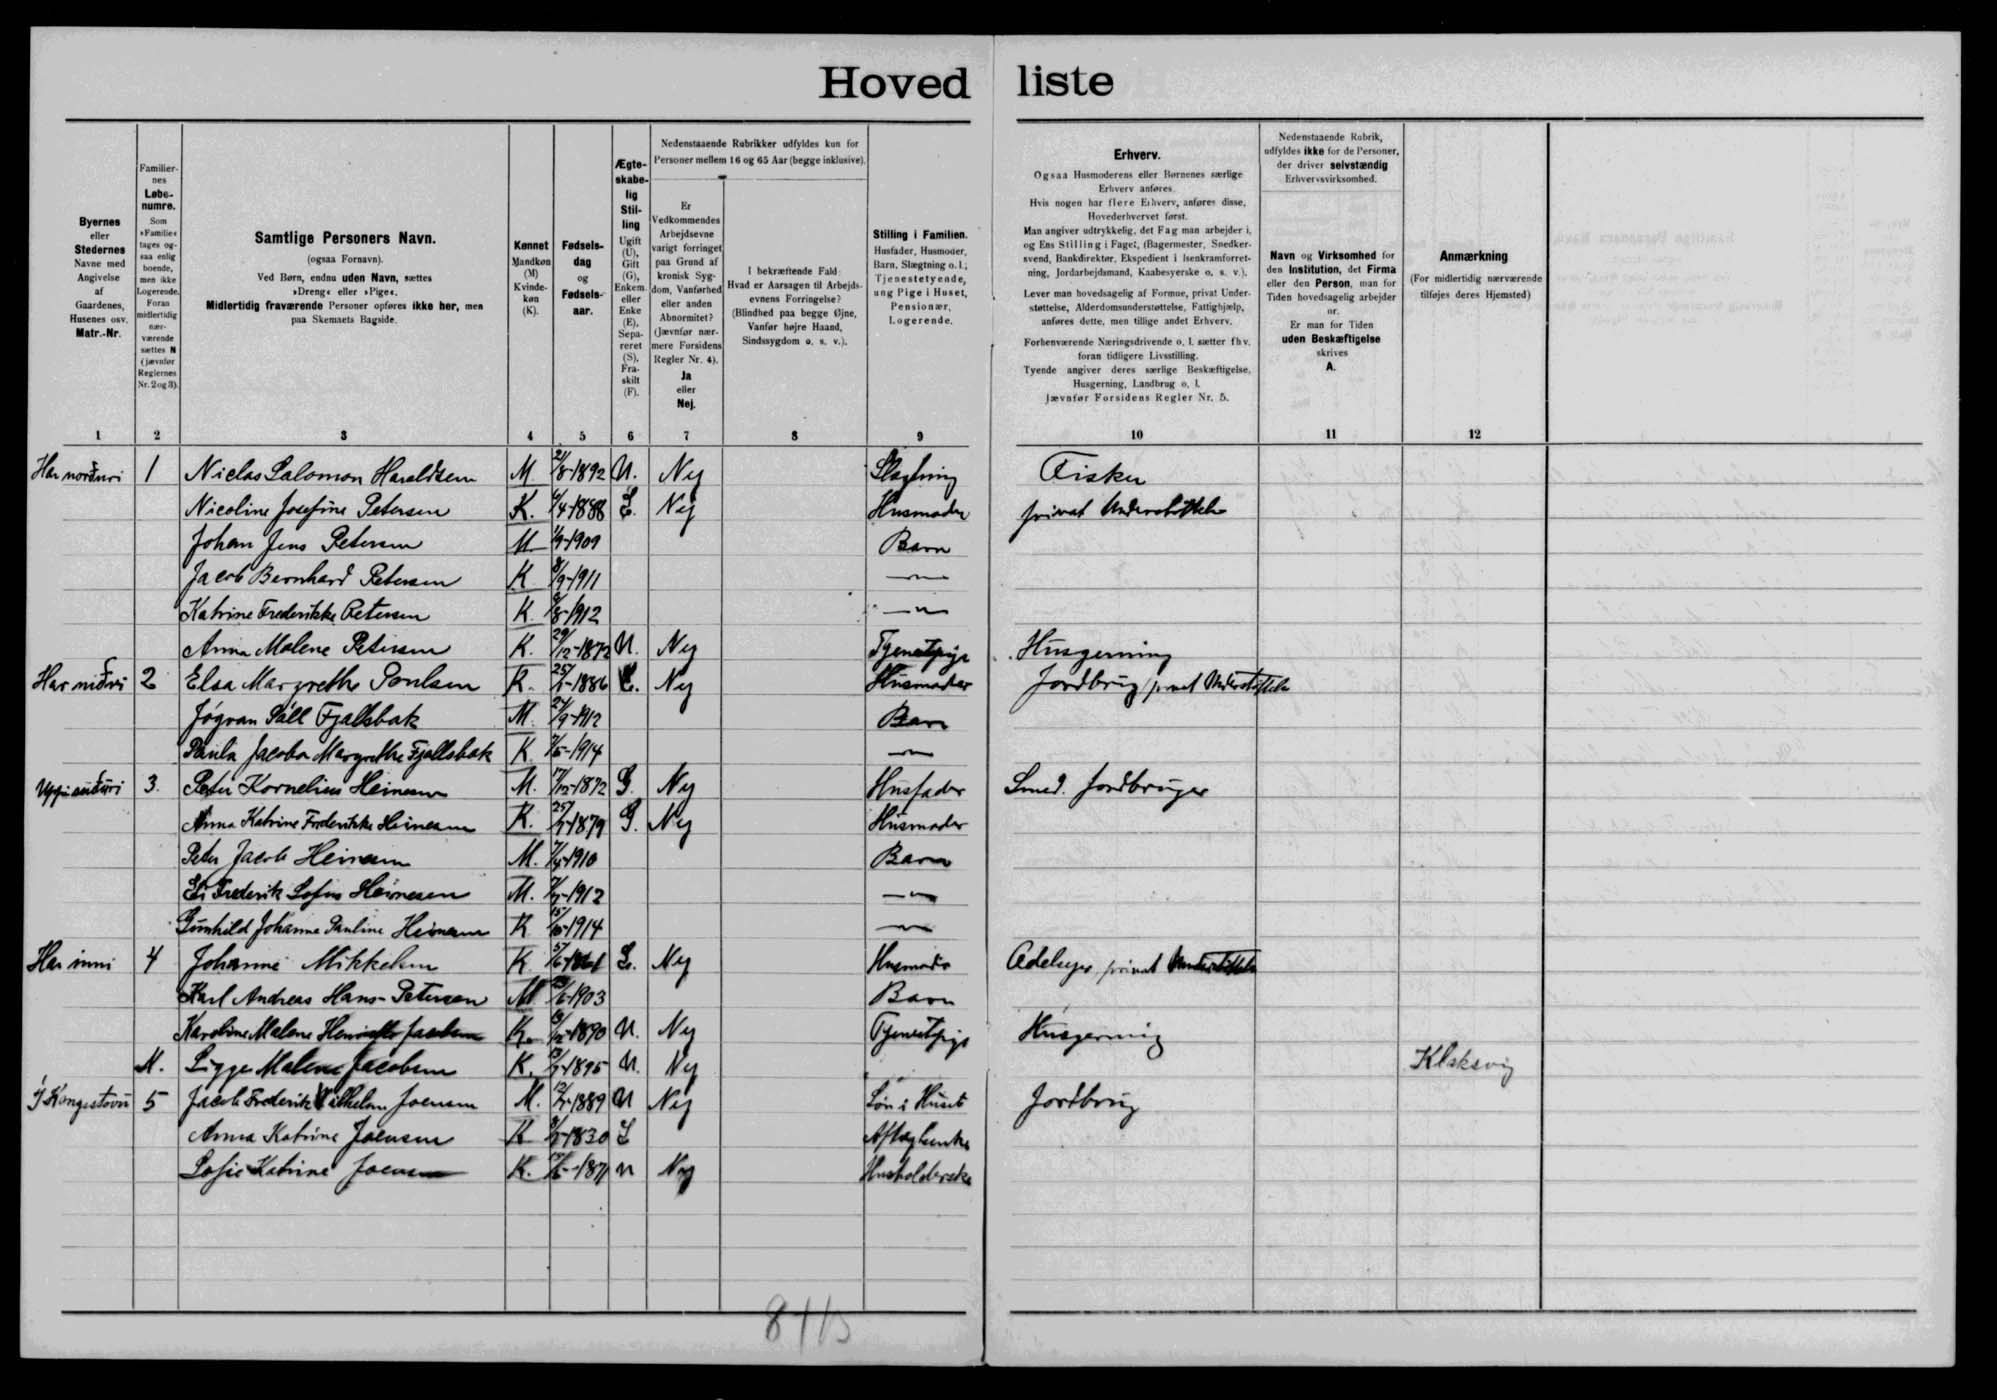 Hoved liste
Byernes
eller
Stedernes
Navne med
Angivelse
af
Gaardenes,
Husenes osv.
Matr.-Nr.
Familier-
nes
Løbe-
numre.
Som
»Familie«
tages og-
saa enlig
boende,
men ikke
Logerende.
Foran
midlertidig
nær-
værende
sættes N
(jævnfør
Reglernes
Nr. 2 og 3).
Samtlige Personers Navn.
(ogsaa Fornavn).
Ved Børn, endnu uden Navn, sættes
»Dreng« eller »Pige«.
Midlertidig fraværende Personer opføres ikke her, men
paa Skemaets Bagside.
Kønnet
Mandkøn
(M)
Kvinde-
køn
(K).
Fødsels-
dag
og
Fødsels-
aar.
Ægte-
skabe-
lig
Stil-
ling
Ugift
(U),
Gift
(G),
Enkem.
eller
Enke
(E),
Sepa-
reret
(S),
Fra-
skilt
(F).
Nedenstaaende Rubrikker udfyldes kun for
Personer mellem 16 og 65 Aar (begge inklusive).
Er
Vedkommendes
Arbejdsevne
varigt forringet
paa Grund af
kronisk Syg-
dom, Vanførhed
eller anden
Abnormitet?
(Jævnfør nær-
mere Forsidens
Regler Nr. 4).
Ja
eller
Nej.
I bekræftende Fald:
Hvad er Aarsagen til Arbejds-
evnens Forringelse?
(Blindhed paa begge Øjne,
Vanfør højre Haand,
Sindssygdom o. s. v.).
Stilling i Familien.
Husfader, Husmoder,
Barn, Slægtning o. l.;
Tjenestetyende,
ung Pige i Huset,
Pensionær,
Logerende.
Erhverv.
Ogsaa Husmoderens eller Børnenes særlige
Erhverv anføres.
Hvis nogen har flere Erhverv, anføres disse,
Hovederhvervet først.
Man angiver udtrykkelig, det Fag man arbejder i,
og Ens Stilling i Faget, (Bagermester, Snedker-
svend, Bankdirektør, Ekspedient i Isenkramforret-
ning, Jordarbejdsmand, Kaabesyerske o. s. v.).
Lever man hovedsagelig af Formue, privat Under-
støttelse, Alderdomsunderstøttelse, Fattighjælp,
anføres dette, men tillige andet Erhverv.
Forhenværende Næringsdrivende o. l. sætter fhv.
foran tidligere Livsstilling.
Tyende angiver deres særlige Beskæftigelse,
Husgerning, Landbrug o. l.
Jævnfør Forsidens Regler Nr. 5.
Nedenstaaende Rubrik,
udfyldes ikke for de Personer,
der driver selvstændig
Erhvervsvirksomhed.
Navn og Virksomhed for
den Institution, det Firma
eller den Person, man for
Tiden hovedsagelig arbejder
for.
Er man for Tiden
uden Beskæftigelse
skrives
A.
Anmærkning
(For midlertidig nærværende
tilføjes deres Hjemsted)
1 2 3 4 5 6 7 8 9 10 11 12
Har norðuri 1 Niclas Salomon Haraldsen M. 1892 U. Nej Slægtning Fisker
Nicoline Josefine Petersen K. 4-1888 E. Nej Husmoder privat Understøttelse
Johan Jens Petersen M 9-1909 Barn
Jacob Bernhard Petersen K 8/9-1911
Katrine Frederikke Petersen K. 8-1912
Anna Malene Petersen K. 29/12-1872 U. Nej Tjenestpige Husgerning
Har niðri 2 Elsa Margrethe Poulsen K. 1886 E. Nej Husmoder Jordbrug privat Understøttelse
Jógvan Páll Fjallsbak M. 9-1912 Barn
Paula Jacoba Margrethe Fjallsbak K. 1914
3. Peter Kornelius Heinesen M. 1872 G. Nej Husfader Smed. Jordbruger
Anna Katrine Frederikke Heinesen K. 1879 G. Nej Husmoder
Peter Jacob Heinesen M. 1910 Barn
Frederik Sofus Heinesen M. 1912
Gunhild Johanna Pauline Heinesen K 1914
Har inni 4 Johanne Mikkelsen K. 1861 E. Nej Husmoder privat Understøttelse
Karl Andreas Hans-Petersen M 1903 Barn
Karoline Malene Henriette Jacobsen K. 1890 U. Nej Tjenestpige Husgerning
Sigge Malene Jacobsen K. 1895 U. Nej Klaksvig
Í Kongsstovu 5 Jacob Frederik Vilhelm Joensen M. 1889 U Nej Søn i Huset Jordbrug
Anna Katrine Joensen K 1830 E
Sofie Katrine Joensen K. 1871 U Nej Husholderske